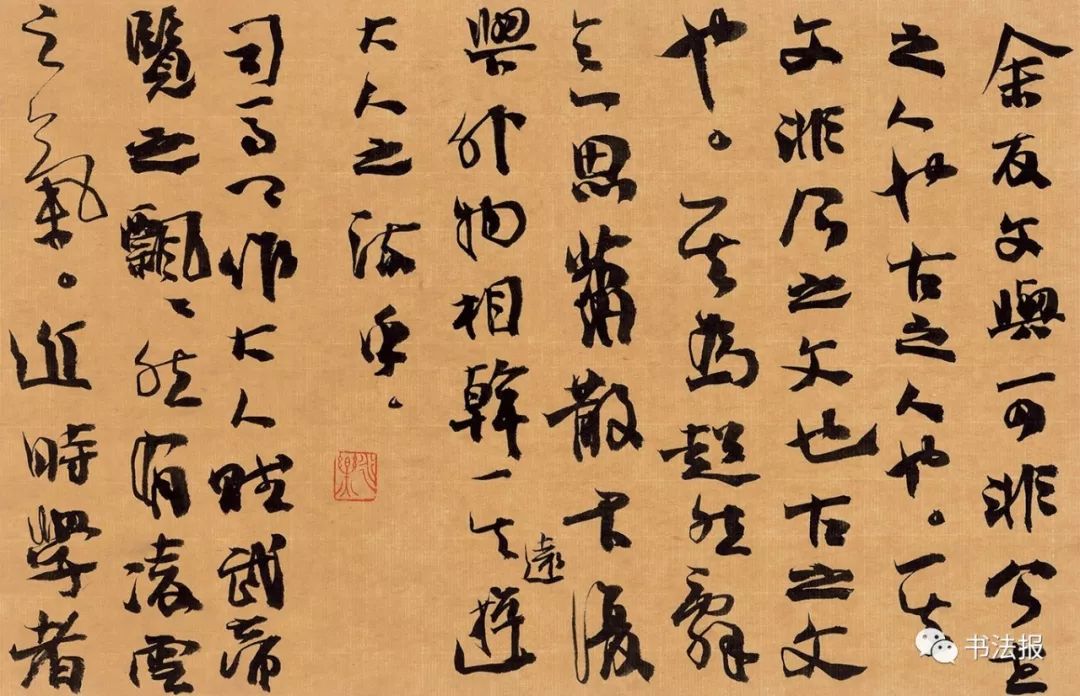 余友文與可非今世
之人也古之人也。其
文非今之文也古之文
也。其為超然辭
意思蕭散不復
與外物相幹其遠遊
大人之流乎。
司馬作大人賦武帝
覽之飄〻然有凌雲
之氣。近時學者
书法报